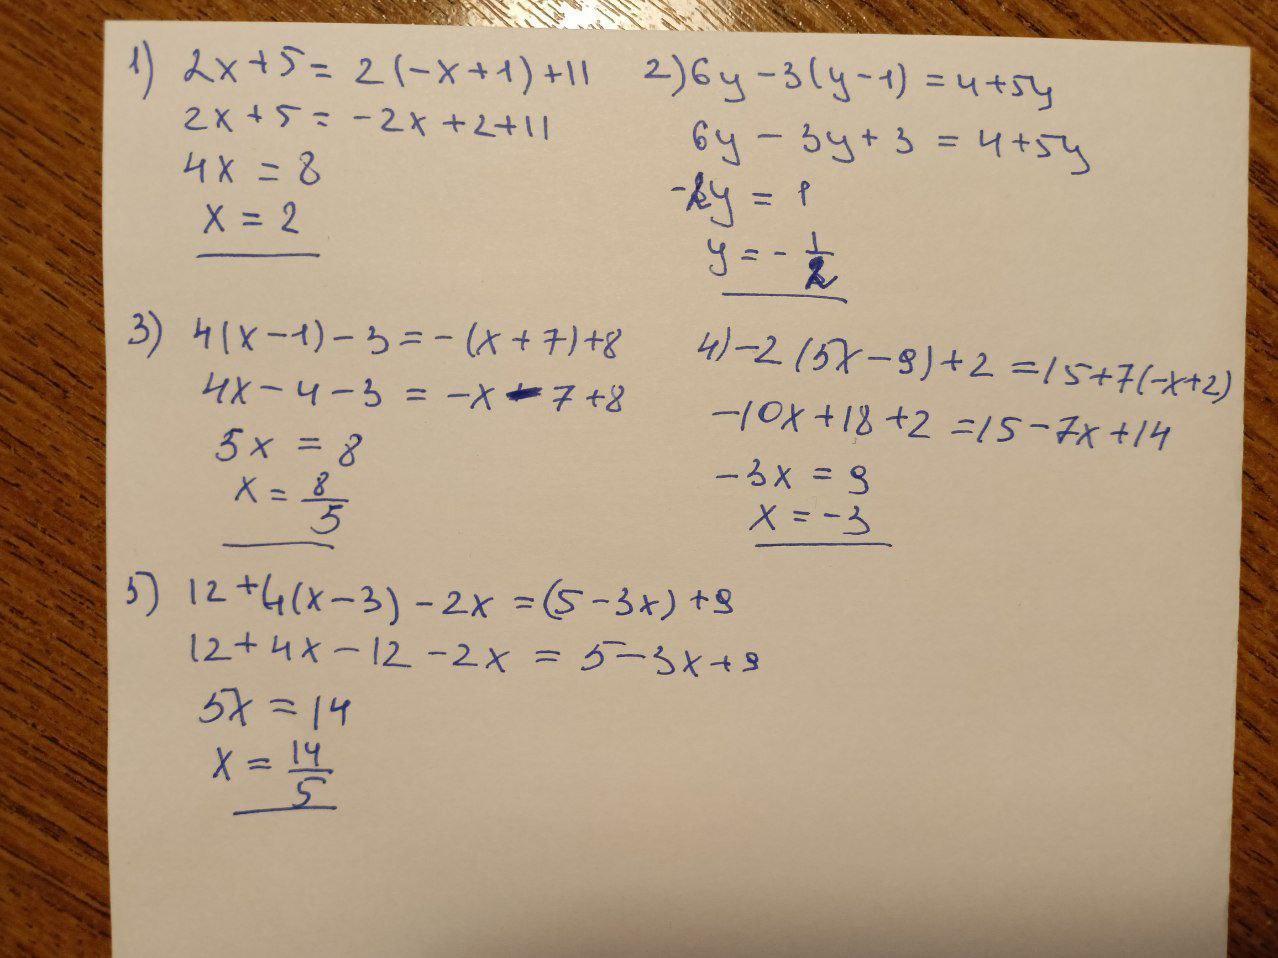 1) 2x+5 = 2(-x+1)+11
2x+5 = -2x+2+11
4x = 8
x = 2
2) 6y-3(y-1) = 4+5y
6y - 3y+3 = 4+5y
-2y = 1
y = - 1/2
3) 4(x-1)-3 = -(x+7)+8
4x-4-3 = -x-7+8
5x = 8
x = 8/5
4) -2(5x-9)+2 = 15+7(-x+2)
-10x+18+2 = 15-7x+14
-3x = 9
x = -3
5) 12+4(x-3)-2x = (5-3x)+9
12+4x-12-2x = 5-3x+9
5x = 14
x = 14/5